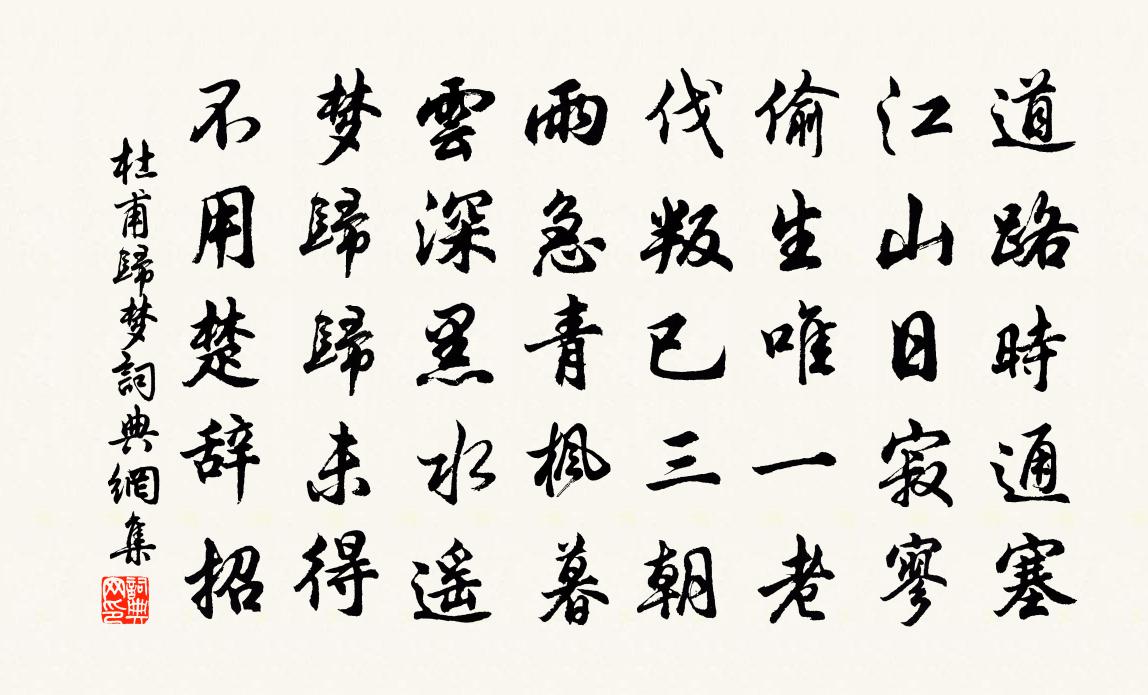 道路時通塞
江山日寂寥
偷生唯一老
伐叛已三朝
雨急青楓暮
雲深黑水遥
梦歸歸未得
不用楚辞招
杜甫歸梦詞典網集
詞典网印